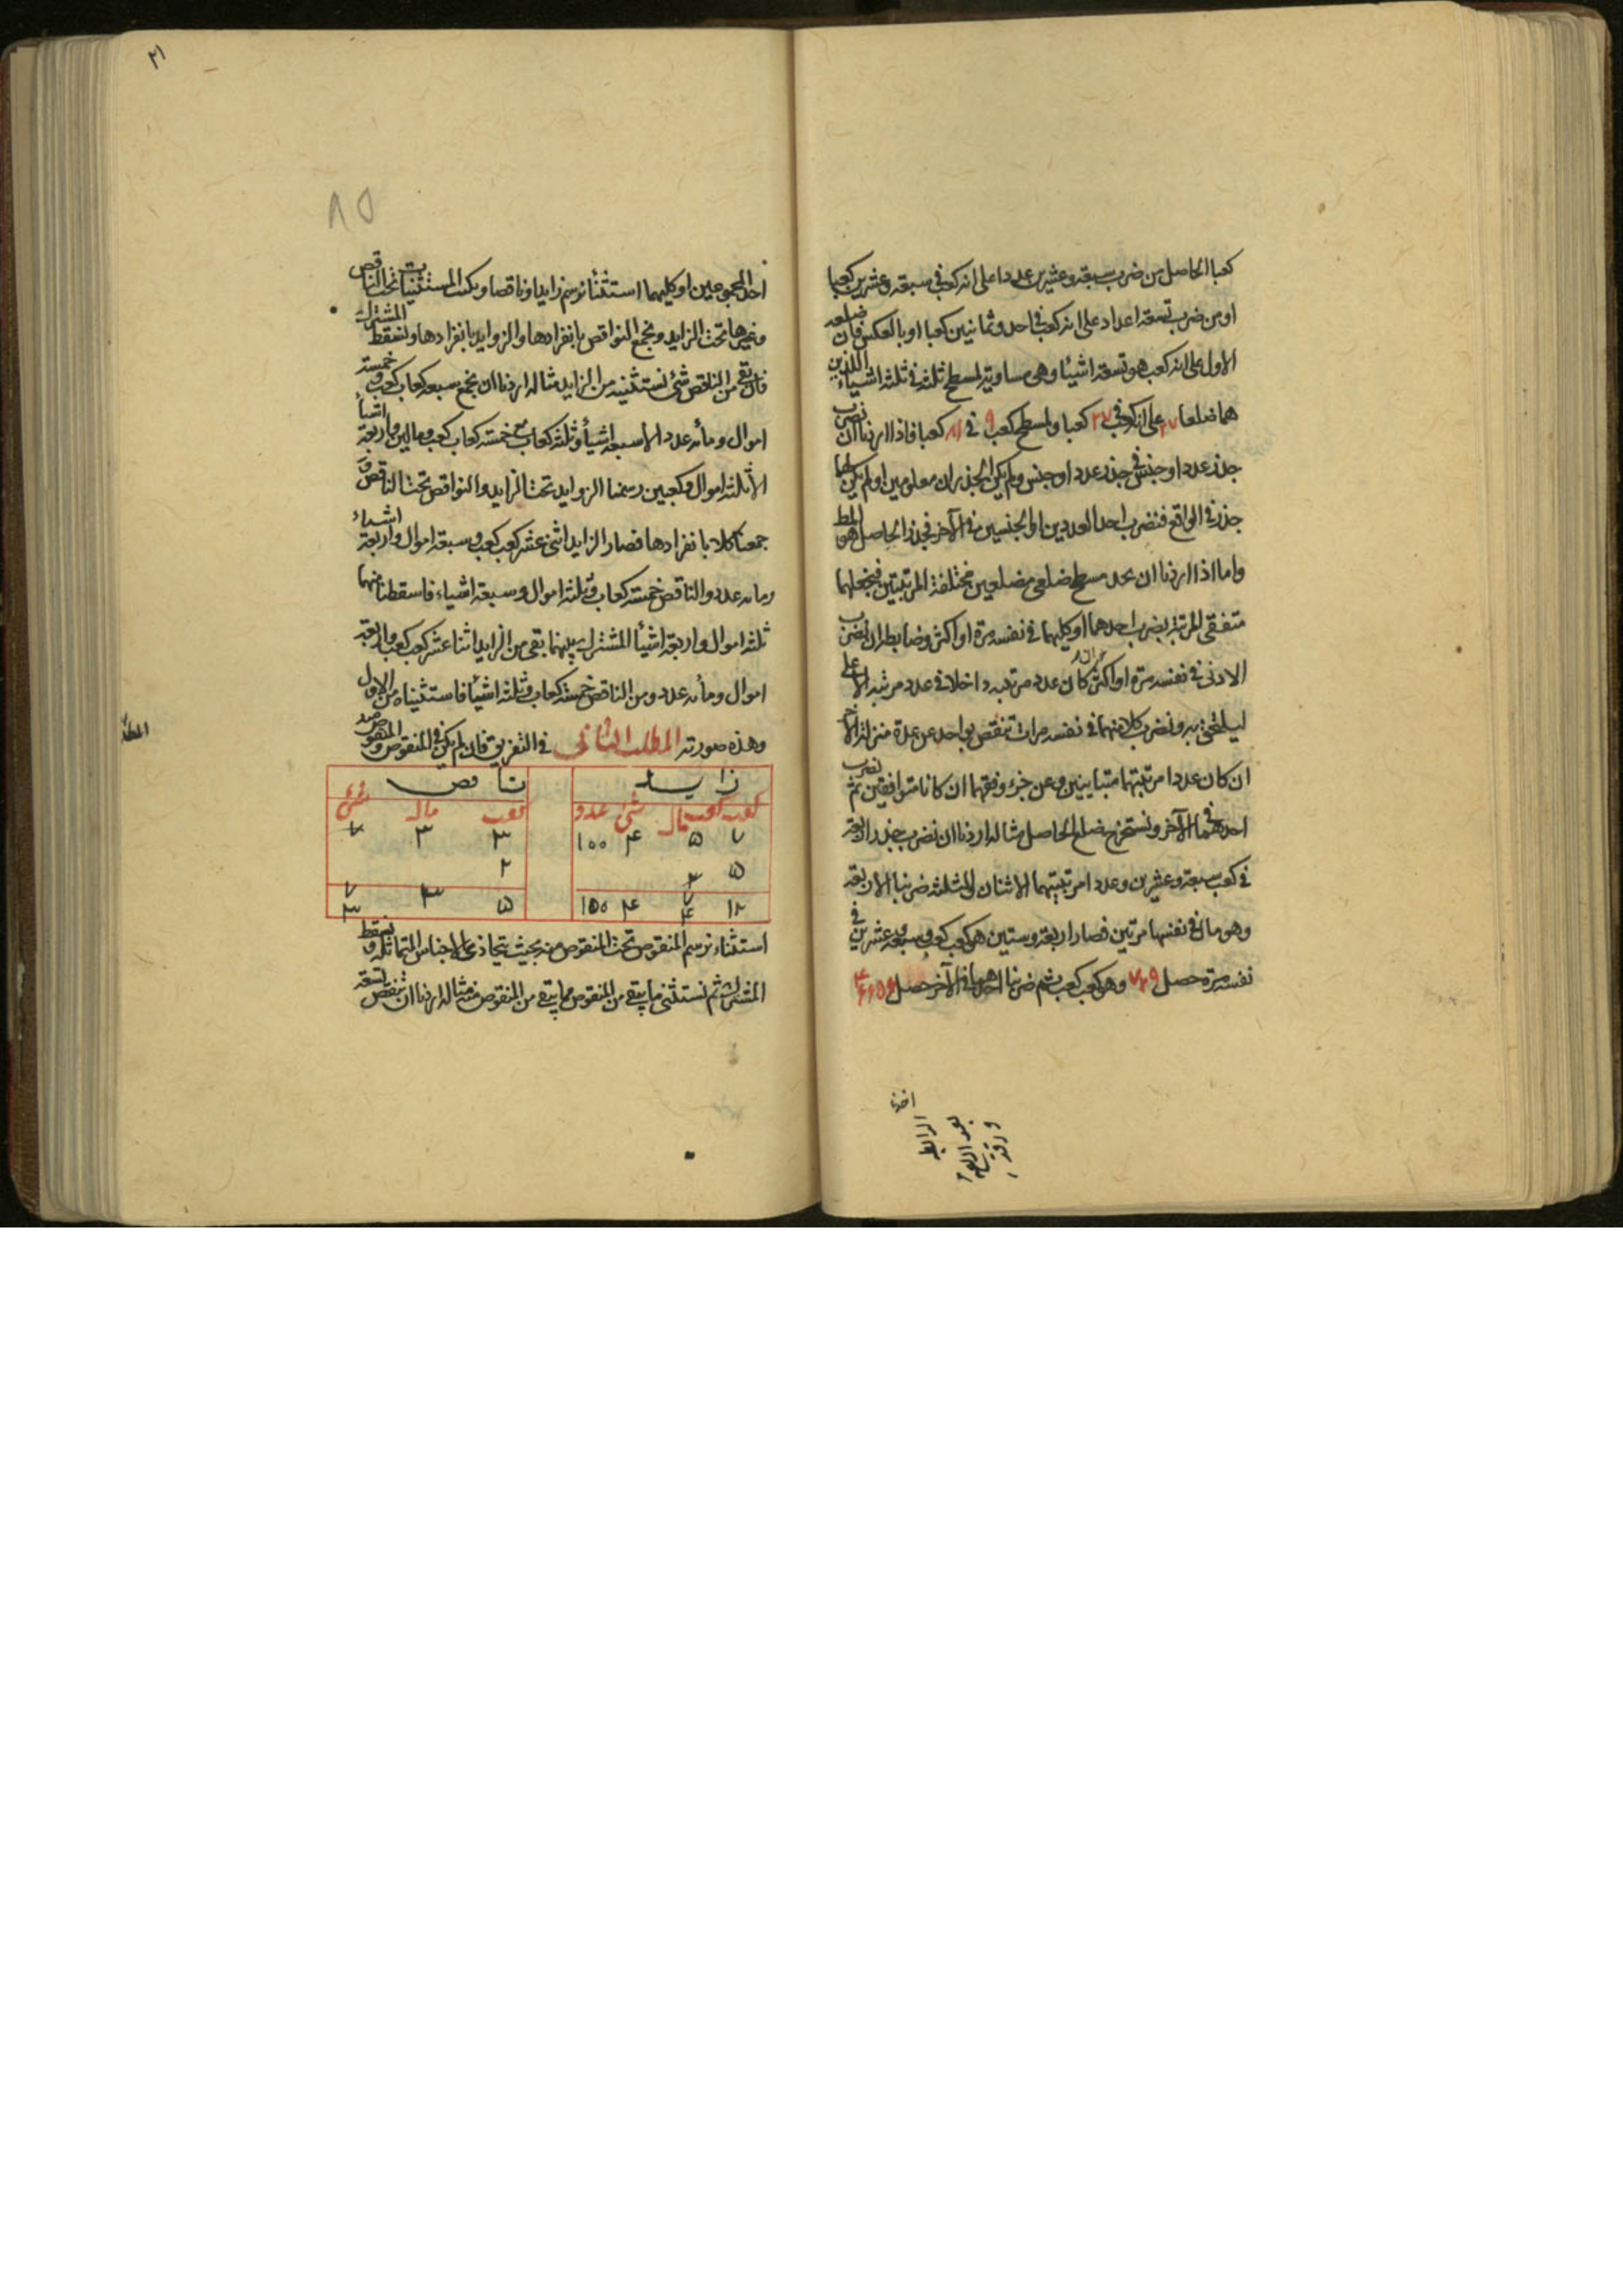 كعبا الحاصل من ضرب سبعة وعشرين عددا على انه كعب فى سبعة وعشرين كعبا
او من ضرب تسعة اعداد على انه كعب فى احد وثمانين كعبا او بالعكس فان ضلعه
الاول على انه كعب هو تسعة اشيئا وهى مساوية لمسطح ثلثة فى ثلثة اشياء اللذين
هما ضلعا ٢٧ على انه كعب فى ٢٧ كعبا ولمسطح كعب ٩ فى ٨١ كعبا فاذا اردنا ان نضرب
جذر عدد او جنس فى جذر عدد او جنس ولم يكن الجذران معلومين او لم يكن لهما
جذر فى الواقع فنضرب احد العددين او الجنسين فى الآخر فجذر الحاصل هو المط
واما اذا اردنا ان نجد مسطح ضلعى مضلعين مختلفة المرتبتين فنجعلهما
متفقى المرتبة بضرب احدهما او كليهما فى نفسه مرة او اكثر وضابطه ان نضرب
الادنى فى نفسه مرة او اكثر ان كان عدد مرتبته داخلا فى عدد مرتبة الاعلى
ليلحق به ونضرب كلا منهما فى نفسه مرات تنقص بواحد عن عدة منزلة الآخر
ان كان عددا مرتبتهما متباينين وعن جزء وفقهما ان كانا متوافقين ثم نضرب
احدهما فى الآخر ونستخرج ضلع الحاصل مثاله اردنا ان نضرب جذر اربعة
فى كعب سبعة وعشرين وعددا مرتبتيهما الاثنان والثلثة ضربنا الاربعة
وهو مال فى نفسها مرتين فصار اربعة وستين هو كعب كعب وسبعة وعشرين فى
نفسه مرة حصل ٧٢٩ وهو كعب كعب ثم ضربنا احدهما فى الآخر حصل ٤٦٦٥٦
٢١
٨٥
احد المجموعين او كليهما استثناء نرسم زايدا وناقصا ونكتب المستثنيات تحت الناقص
وغيرها تحت الزايد ونجمع النواقص بانفرادها والزوايد بانفرادها ونسقط المشترك
فان بقى من الناقص شئ نستثنيه من الزايد مثاله اردنا ان نجمع سبعة كعاب كعب وخمسة
اموال ومائة عدد الا سبعة اشيأ وثلثة كعاب مع خمسة كعاب كعب ومالين واربعة اشيأ
الا ثلثة اموال وكعبين رسمنا الزوايد تحت الزايد والنواقص تحت الناقص و
جمعنا كلا بانفرادها فصار الزايد اثنى عشر كعب كعب وسبعة اموال واربعة اشياء
ومائة عدد والناقص خمسة كعاب وثلثة اموال وسبعة اشياء فاسقطنا منهما
ثلثة اموال واربعة اشيأ المشترك بينهما بقى من الزايد اثنا عشر كعب كعب واربعة
اموال ومائة عدد ومن الناقص خمسة كعاب وثلثة اشيأ فاستثنيناه من الاول
وهذه صورته المطلب الثانى فى التفريق فان لم يكن فى المنقوص والمنقوص منه
زايد ناقص
كعب كعب مال شئ عدد كعب مال شئ
٧ ٥ ۴ 100 ٣ ٣ ٧
٥ ٢ ٢
١٢ ٧ ۴ 100 ٥ ٣ ٧
۴ ٣
استثناء نرسم المنقوص تحت المنقوص منه بحيث يتحاذى الاجناس المتماثلة ونسقط
المشترك ثم نستثنى ما بقى من المنقوص مما بقى من المنقوص منه مثاله اردنا ان ننقص تسعة